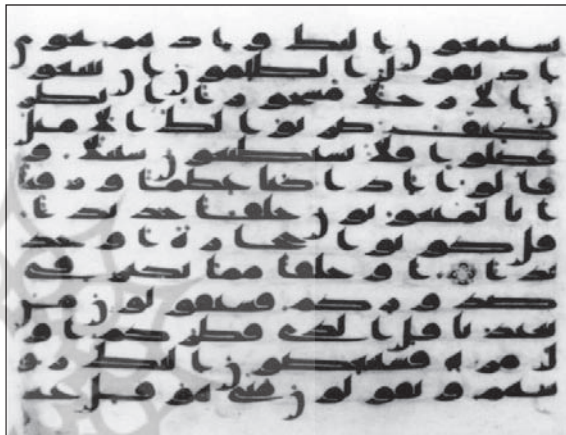 يستمعون اليك واذ هم نجوى
اذ يقول الظلمون ان تتبعو
ن الا رجلا مسحورا انظر
كيف ضربوا لك الامثل
فضلوا فلا يستطيعون سبيلا و
قالوا اذا كنا عظما ورفتا
انا لمبعوثون خلقا جديدا
قل كونوا حجارة او حد
يدا او خلقا مما يكبر في
صدوركم فسيقولون من
يعيدنا قل الذي فطركم او
ل مرة فسينغضون اليك رو
سهم ويقولون متى هو قل عسى